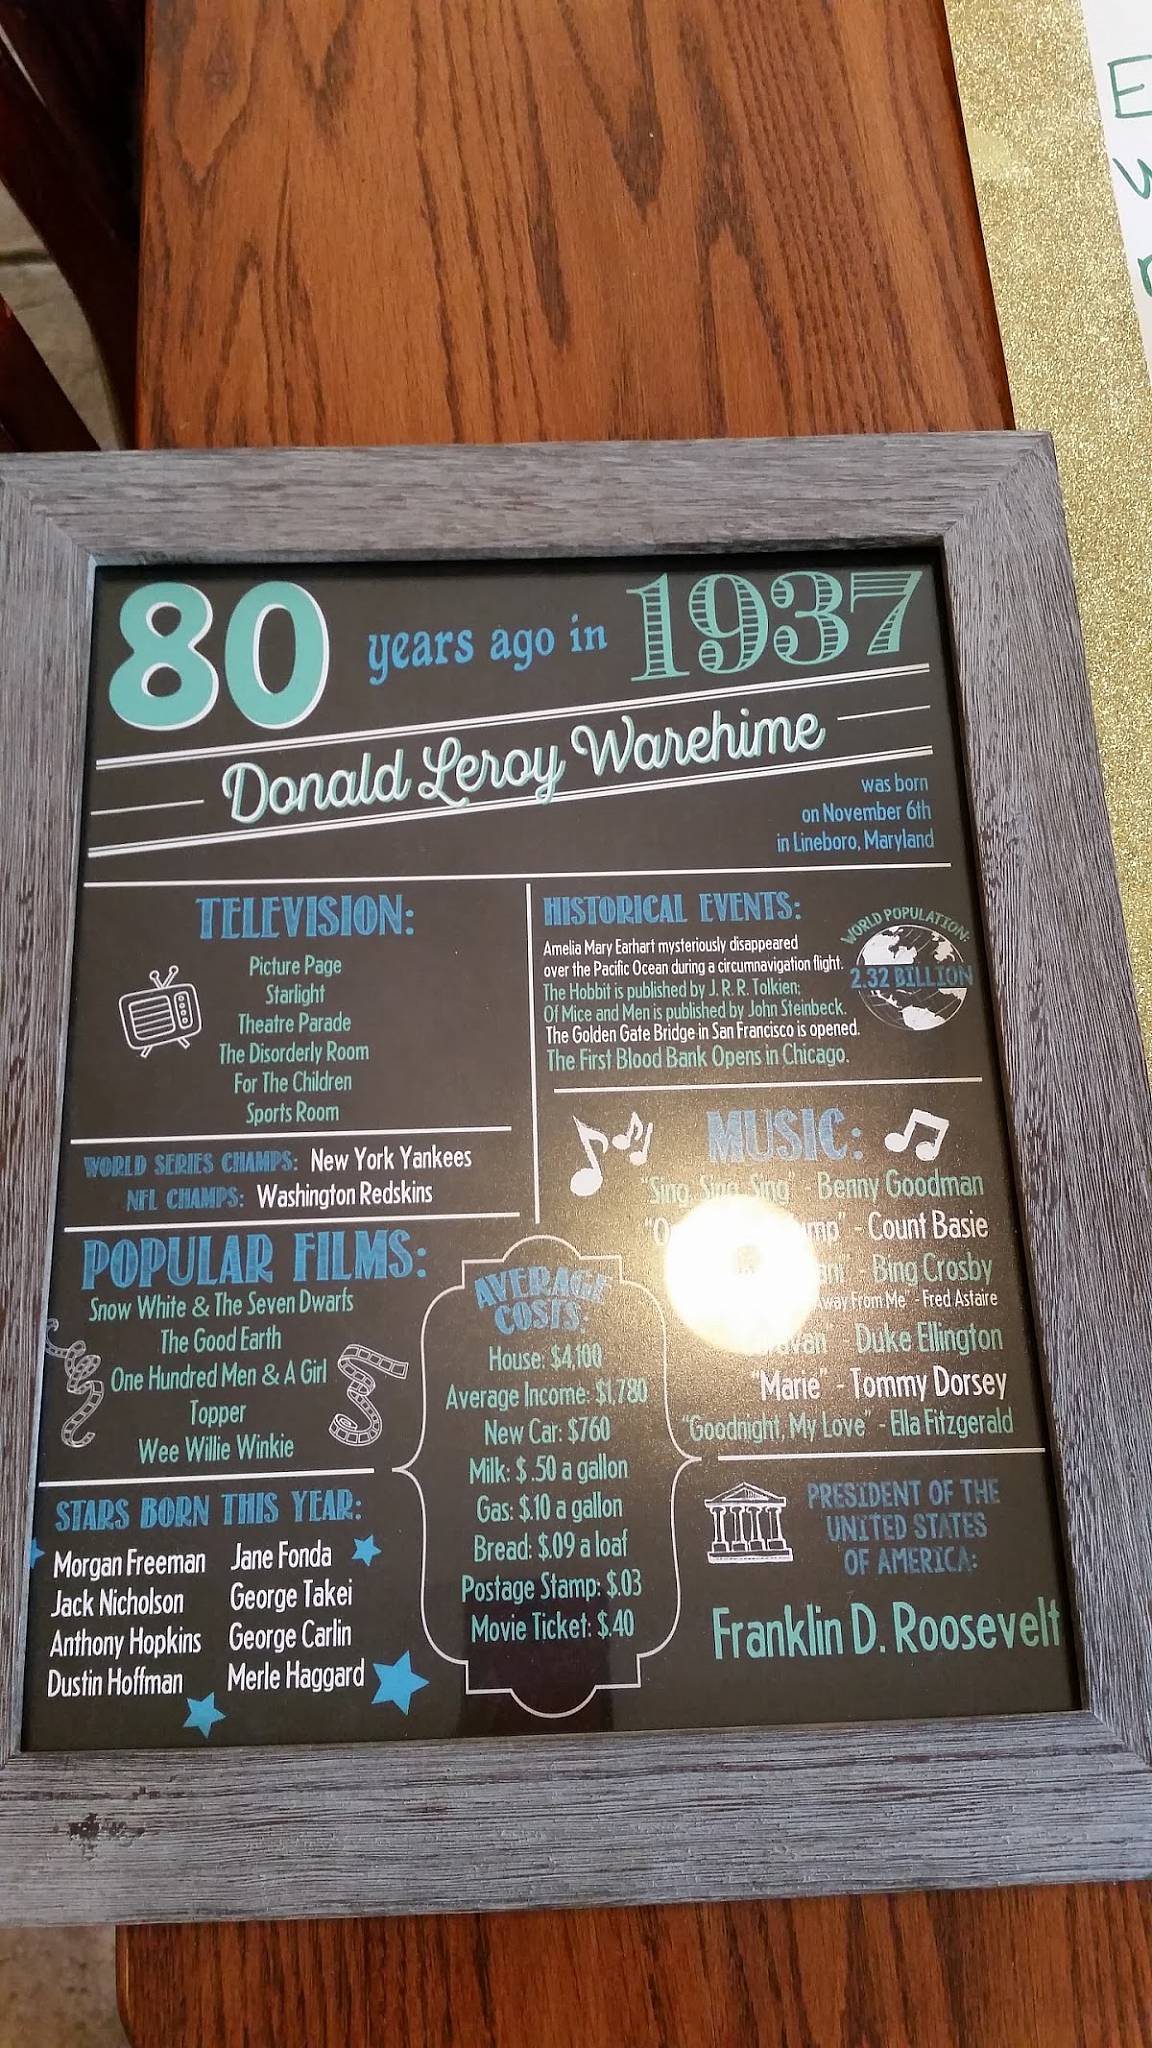 80 years ago in 1937
Donald Leroy Warehime
was born
on November 6th
in Lineboro, Maryland
TELEVISION:
Picture Page
Starlight
Theatre Parade
The Disorderly Room
For The Children
Sports Room
WORLD SERIES CHAMPS: New York Yankees
NFL CHAMPS: Washington Redskins
POPULAR FILMS:
Snow White & The Seven Dwarfs
The Good Earth
One Hundred Men & A Girl
Topper
Wee Willie Winkie
STARS BORN THIS YEAR:
Morgan Freeman Jane Fonda
Jack Nicholson George Takei
Anthony Hopkins George Carlin
Dustin Hoffman Merle Haggard
HISTORICAL EVENTS:
Amelia Mary Earhart mysteriously disappeared
over the Pacific Ocean during a circumnavigation flight.
The Hobbit is published by J. R. R. Tolkien;
Of Mice and Men is published by John Steinbeck.
The Golden Gate Bridge in San Francisco is opened.
The First Blood Bank Opens in Chicago.
WORLD POPULATION:
2.32 BILLION
MUSIC:
"Sing, Sing, Sing" - Benny Goodman
- Count Basie
- Bing Crosby
Away From Me" - Fred Astaire
Duke Ellington
"Marie" - Tommy Dorsey
"Goodnight, My Love" - Ella Fitzgerald
AVERAGE
COSTS:
House: $4,100
Average Income: $1,780
New Car: $760
Milk: $.50 a gallon
Gas: $.10 a gallon
Bread: $.09 a loaf
Postage Stamp: $.03
Movie Ticket: $.40
PRESIDENT OF THE
UNITED STATES
OF AMERICA:
Franklin D. Roosevelt